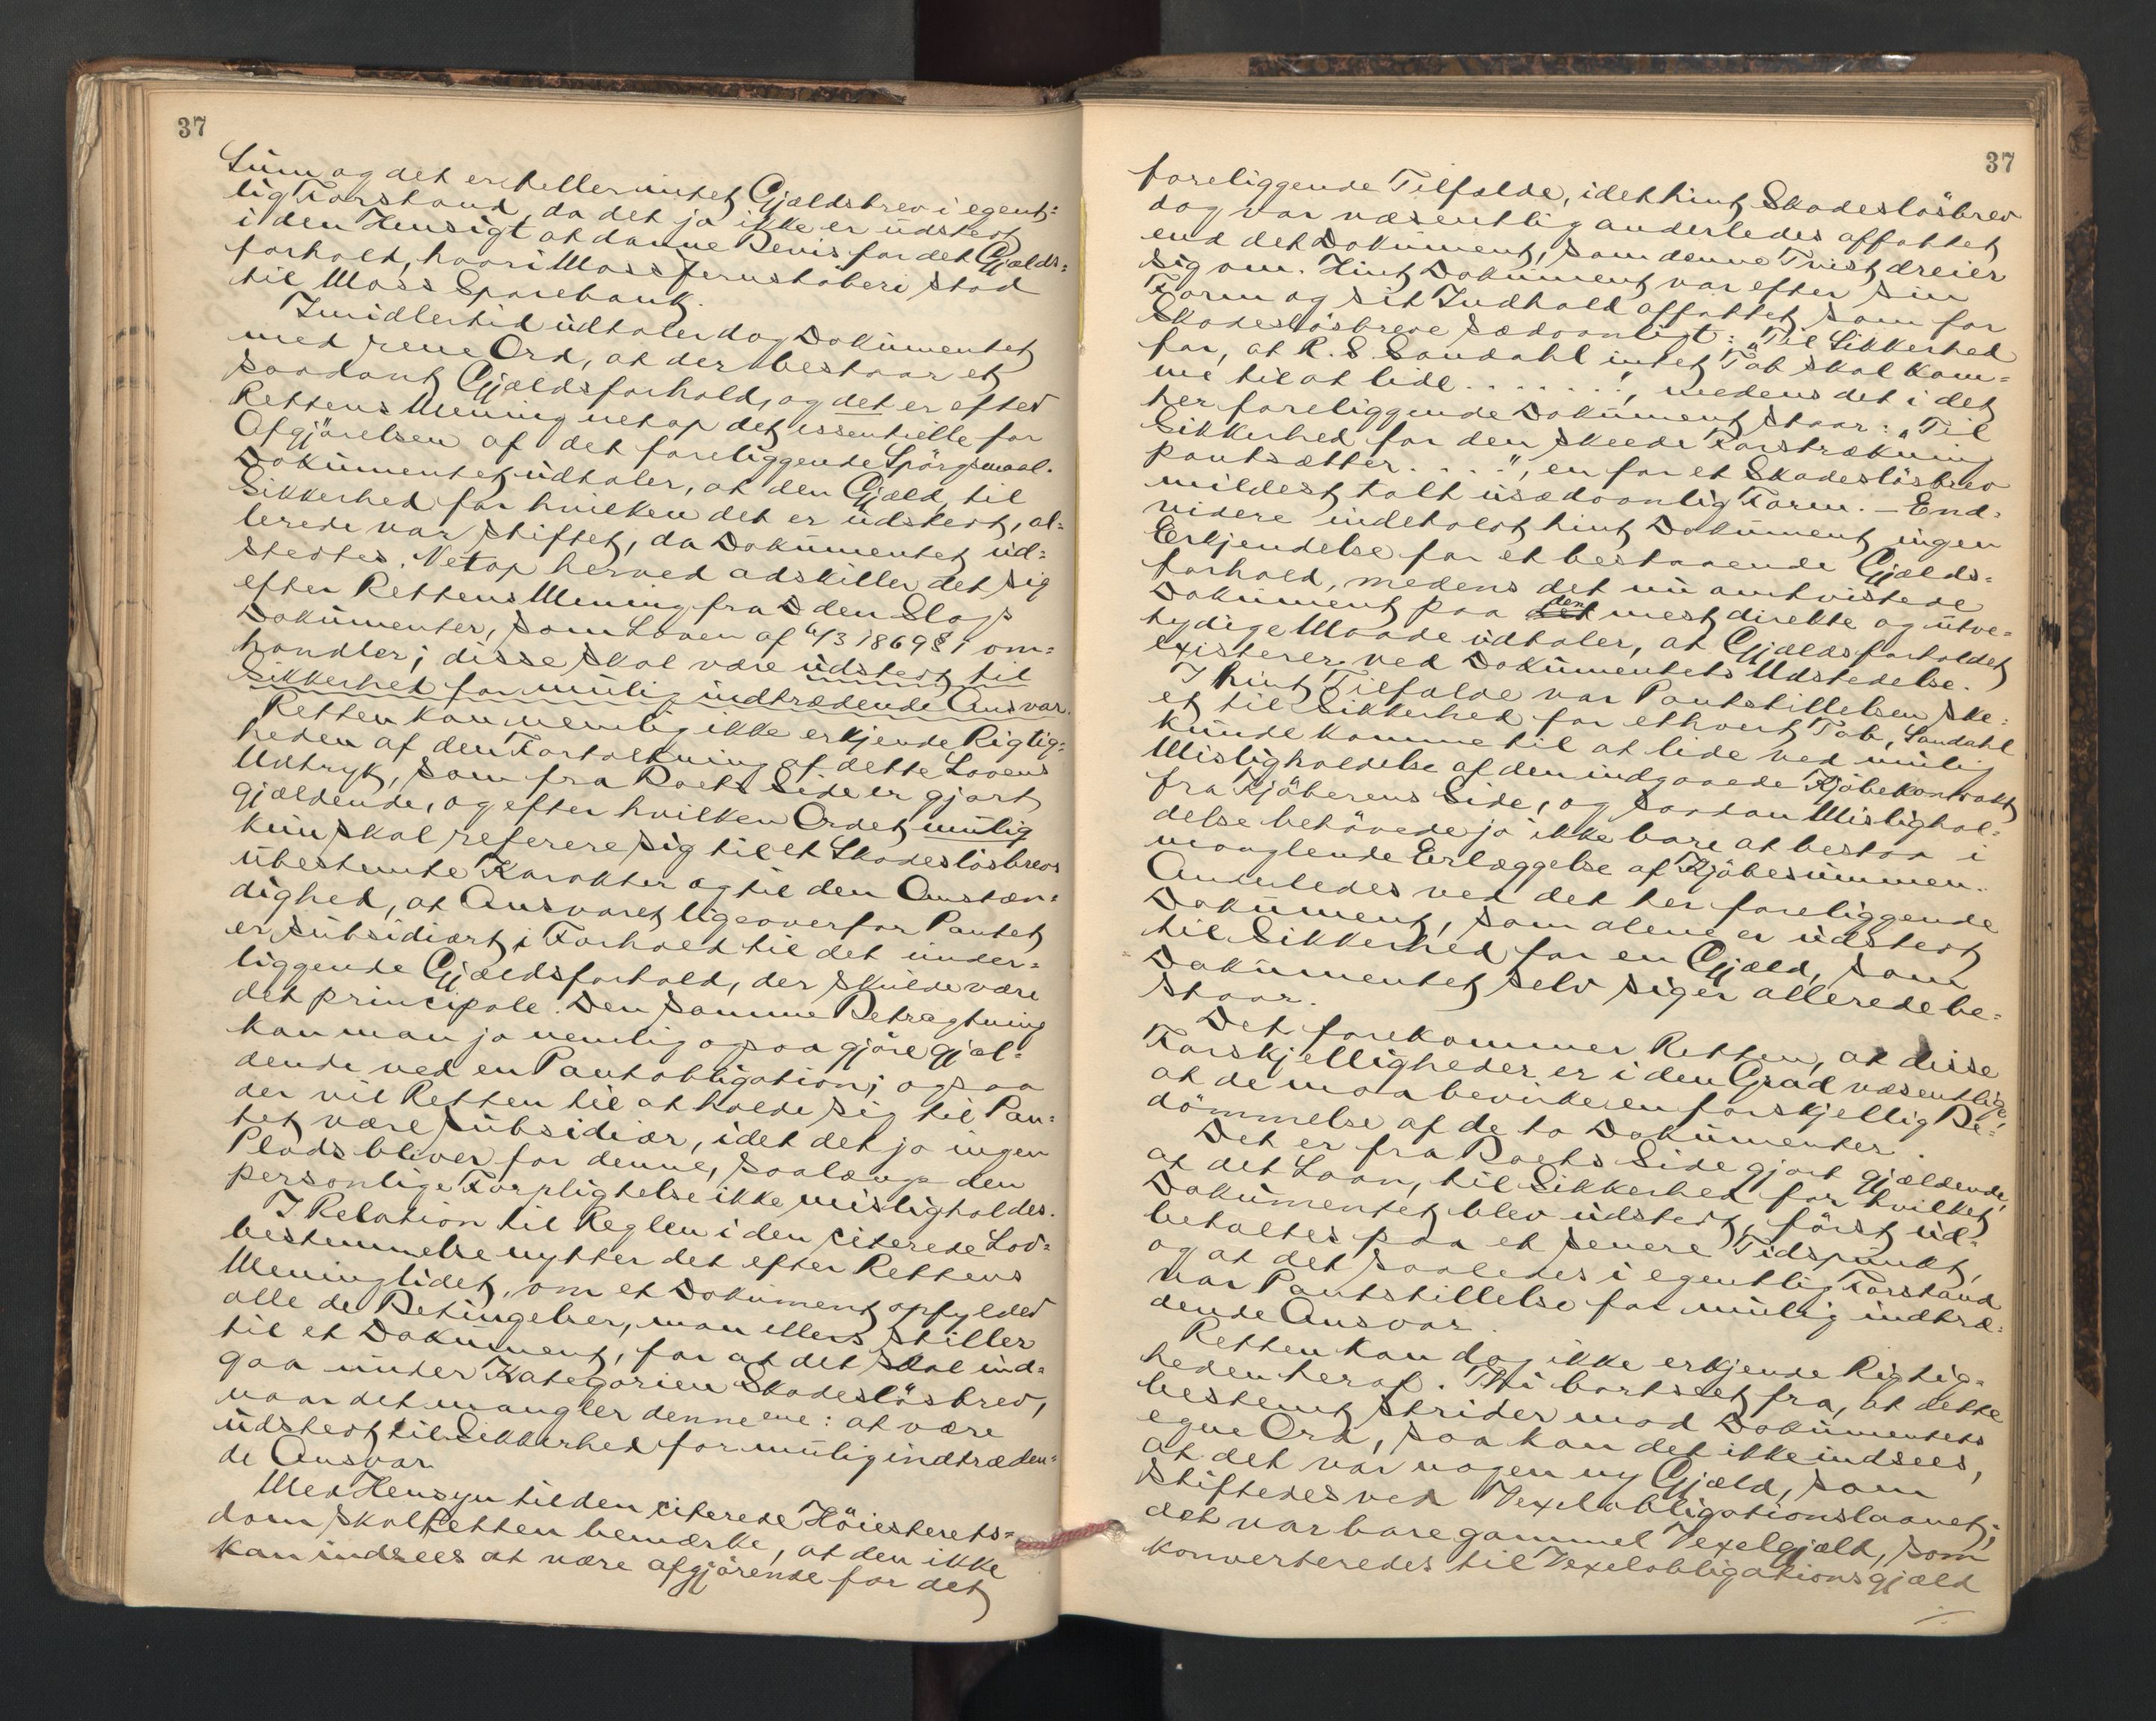 37
Sum og det er heller intet Gjældsbrev i egent=
lig Forstand, da det jo ikke er udstedt
i den Hensigt at danne Bevis for det Gjælds=
forhold, hvori Moss Jernstøberi stod
til Moss Sparebank.
Imidlertid udtaler dog Dokumentet
med rene Ord, at der bestaar et
saadant Gjældsforhold, og det er efter
Rettens Mening netop det essentielle for
Afgjörelsen af det foreliggende Spörgsmaal.
Dokumentet udtaler, at den Gjæld, til
Sikkerhed for hvilken det er udstedt, al=
lerede var stiftet, da Dokumentet ud=
stedtes. Netop herved adskiller det sig
efter Rettens Mening fra den Slags
Dokumenter, som Loven af 6/3 1869 § 1 om=
handler; disse skal være udstedt til
Sikkerhed for mulig indtrædende Ansvar.
Retten kan nemlig ikke erkjende Rigtig=
heden af den Fortolkning af dette Lovens
Udtryk, som fra Boets Side er gjort
gjældende, og efter hvilken Ordet mulig
kun skal referere sig til et Skadeslösbrevs
ubestemte Karakter og til den Omstæn=
dighed, at Ansvaret ligeoverfor Pantet
er subsidiært i Forhold til det under=
liggende Gjældsforhold, der skulde være
det principale. Den samme Betragtning
kan man jo nemlig ogsaa gjöre gjæl=
dende ved en Pantobligation; ogsaa
der vil Retten til at holde sig til Pan=
tet være subsidiær, idet det jo ingen
Plads bliver for denne, saalænge den
personlige Forpligtelse ikke misligholdes.
I Relation til Reglen i den citerede Lov=
bestemmelse nytter det efter Rettens
Mening lidet, om et Dokument opfylder
alle de Betingelser, man ellers stiller
til et Dokument, for at det skal ind=
gaa under Kategorien Skadeslösbrev,
naar det mangler denne ene: at være
udstedt til Sikkerhed for mulig indtræden=
de Ansvar.
Med Hensyn til den citerede Höiesterets=
dom skal Retten bemærke, at den ikke
kan indsees at være afgjörende for det
37
foreliggende Tilfælde, idet hint Skadeslösbrev
dog var væsentlig anderledes affattet
end det Dokument, som denne Tvist dreier
sig om. Hint Dokument var efter sin
Form og sit Indhold affattet som for
Skadeslösbreve sædvanligt: "Til Sikkerhed
for, at R. S. Sandahl intet Tab skal kom=
me til at lide . . . . . .", medens det i det
her foreliggende Dokument staar: "Til
Sikkerhed for den skeede Forstrækning
pantsætter . . . .", en for et Skadeslösbrev
mildest talt usædvanlig Form. – End=
videre indeholdt hint Dokument ingen
Erkjendelse for et bestaaende Gjælds=
forhold, medens det nu omtvistede
Dokument paa det den mest direkte og utve=
tydige Maade udtaler, at Gjældsforholdet
existerer ved Dokumentets Udstedelse.
I hint Tilfælde var Pantstillelsen ske=
et til Sikkerhed for ethvert Tab, Sandahl
kunde komme til at lide ved mulig
Misligholdelse af den indgaaede Kjöbekontrakt
fra Kjöberens Side, og saadan Mislighol=
delse behövede jo ikke bare at bestaa i
manglende Erlæggelse af Kjöbesummen.
Anderledes ved det her foreliggende
Dokument, som alene er udstedt
til Sikkerhed for en Gjæld, som
Dokumentet selv siger allerede be=
staar.
Det forekommer Retten, at disse
Forskjelligheder er i den Grad væsentlige,
at de maa bevirke en forskjellig Be=
dömmelse af de to Dokumenter.
Det er fra Boets Side gjort gjældende,
at det Laan, til Sikkerhed for hvilket
Dokumentet blev udstedt, först ud=
betaltes paa et senere Tidspunkt,
og at det saaledes i egentlig Forstand
var Pantstillelse for mulig indtræ=
dende Ansvar.
Retten kan dog ikke erkjende Rigtig=
heden heraf. Thi bortseet fra, at dette
bestemt strider mod Dokumentets
egne Ord, saa kan det ikke indsees,
at det var nogen ny Gjæld, som
stiftedes ved Vexelobligationslaanet;
det var bare gammel Vexelgjæld, som
konverteredes til Vexelobligationsgjæld